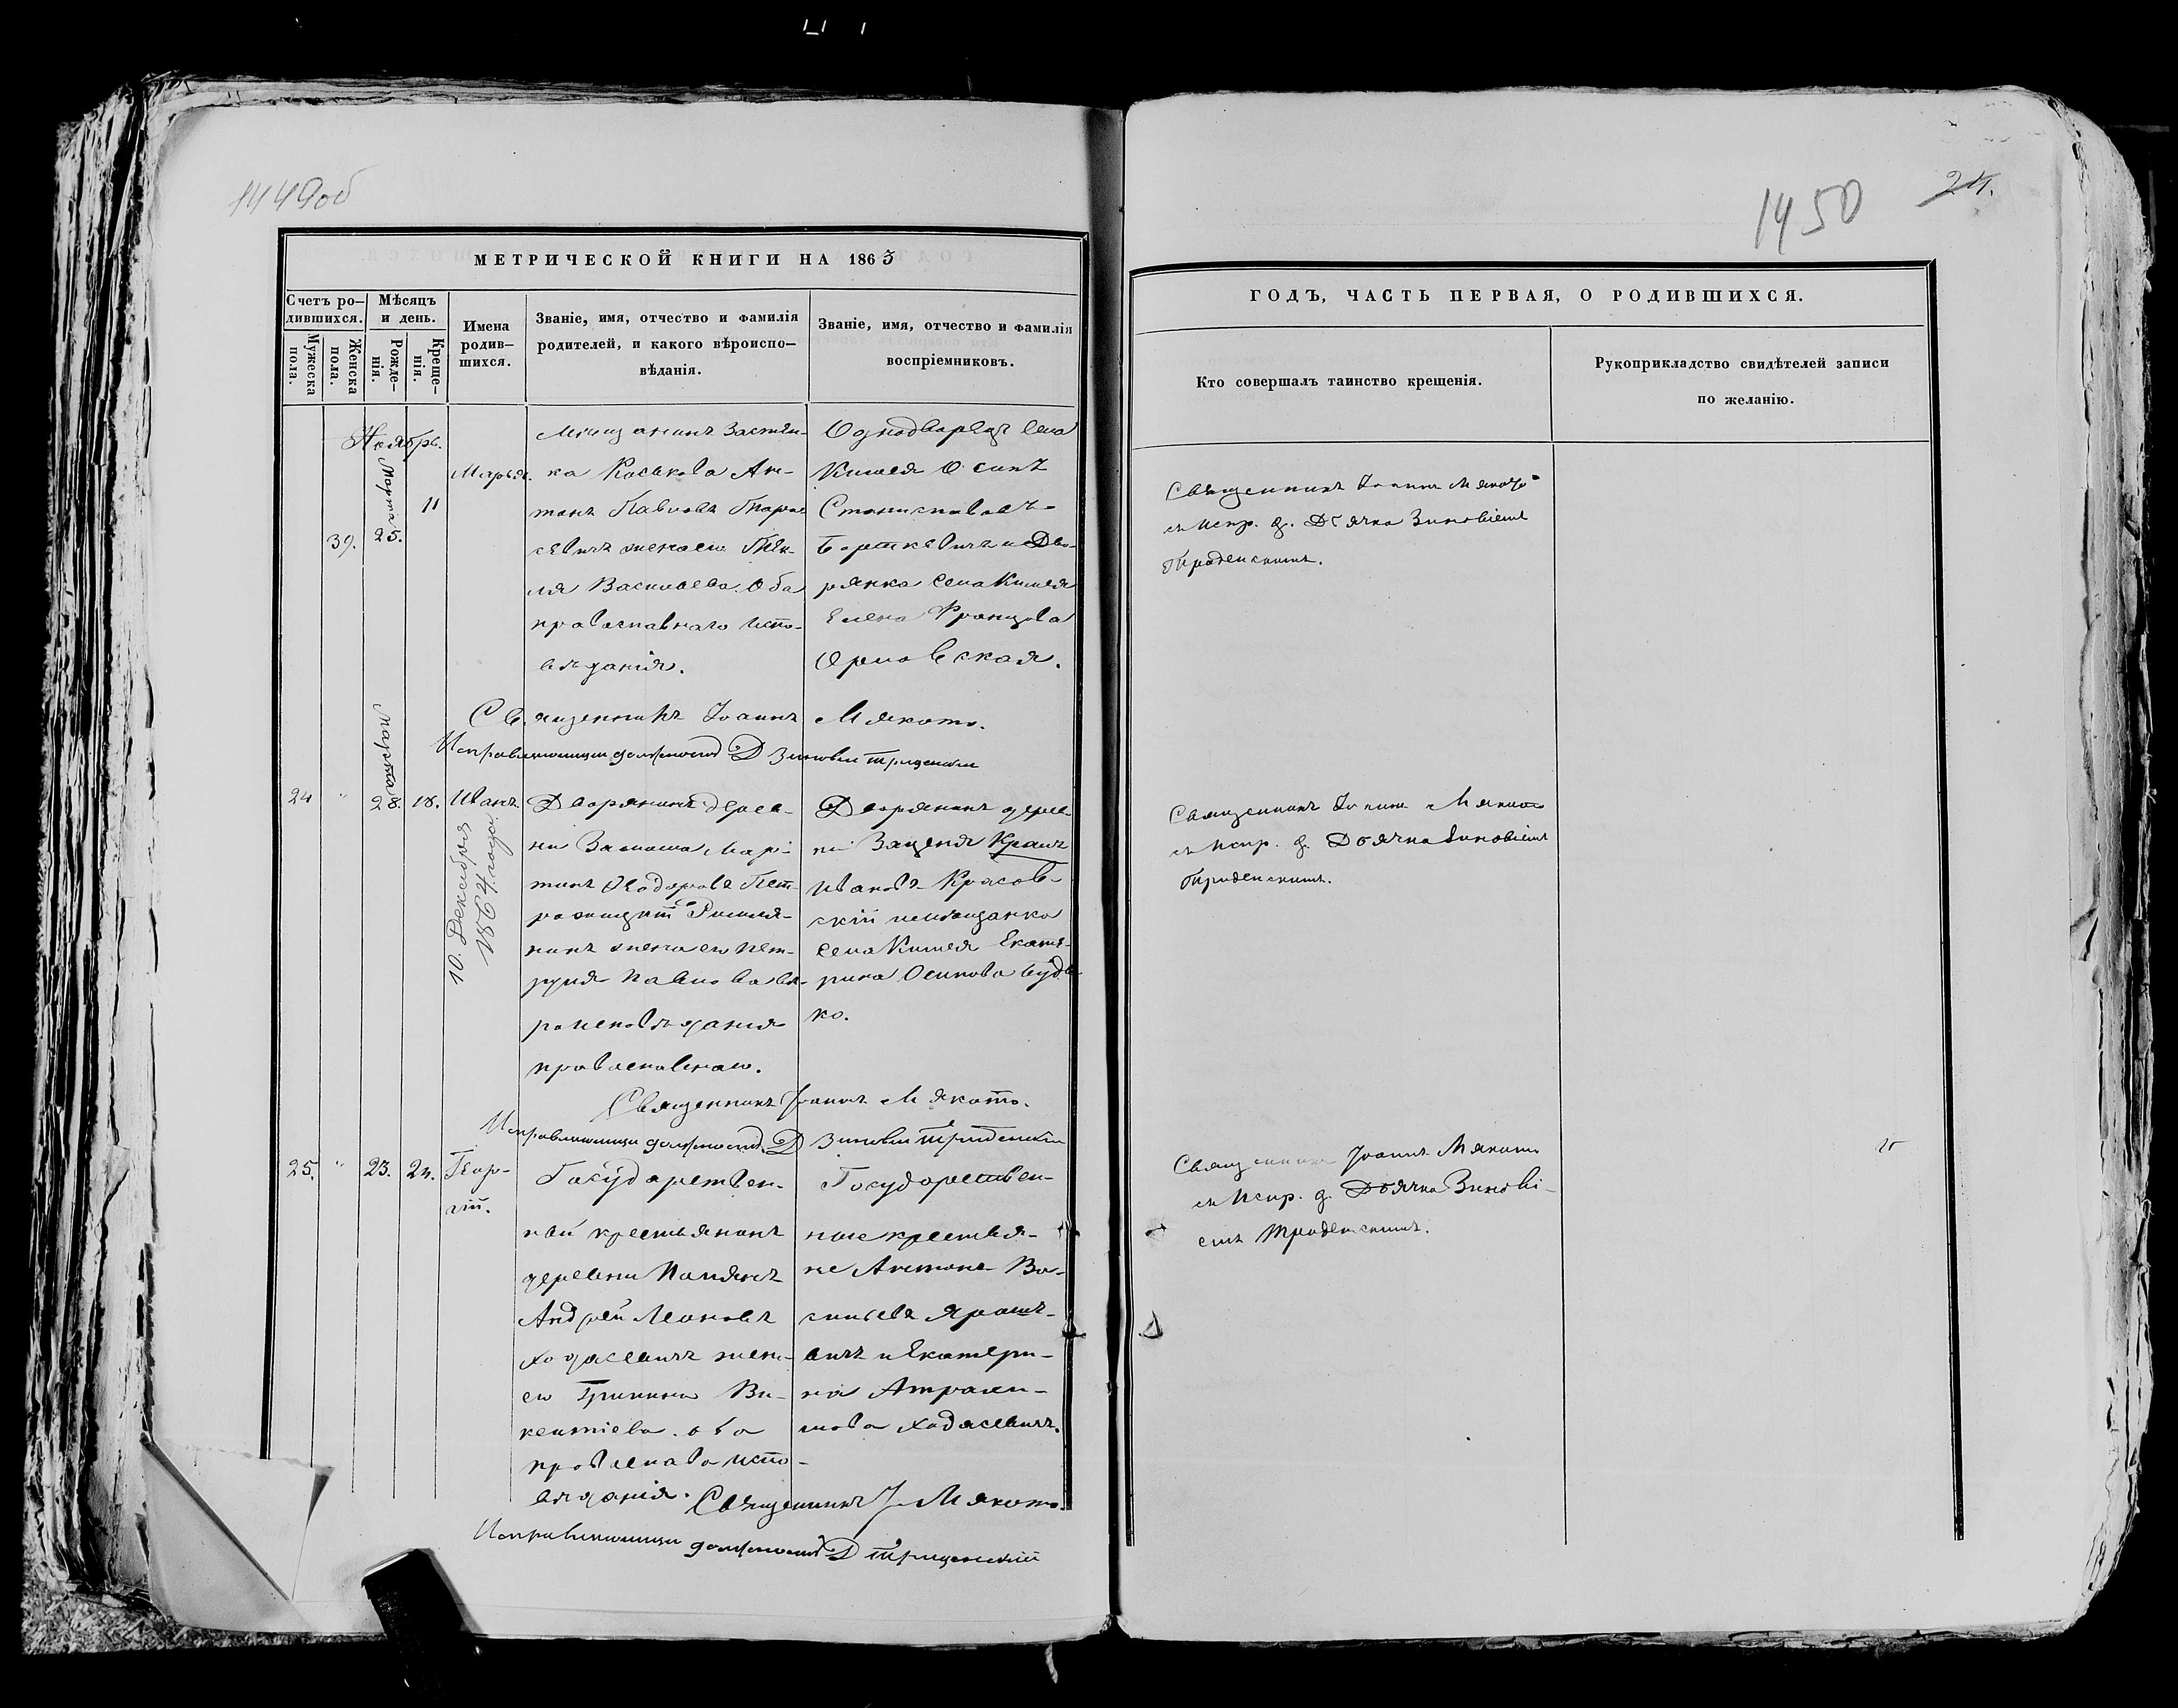 1449об
МЕТРИЧЕСКОЙ КНИГИ НА 1863
Счетъ ро-
дившихся.
Мужеска
пола.
Женска
пола.
Мѣсяцъ
и день.
Рожде-
нія.
Креще-
нія.
Имена
родив-
шихся.
Званіе, имя, отчество и фамилія
родителей, и какого вѣроиспо-
вѣданія.
Званіе, имя, отчество и фамилія
воспріемниковъ.
Ноябрь.
39.
Марта
25.
11
Марья.
Мѣщанинъ Застѣн-
ка Каськова Ан-
тонъ Павловъ
жена его
Васильева Оба
православнаго испо-
вѣданія.
Однодворецъ села
Кимея Осипъ
Станиславовъ
Борткевичъ и Дво-
рянка села Кимея
Елена Францова
Орловская.
Священникъ Іоаннъ Мякота.
Исправляющій должность Д Зиновій
24
"
Марта
28.
18.
Иванъ
10. Декабря
1864 года
Дворянинъ дерев-
ни Замоша Мар-
тинъ Ѳеодоровъ Пет-
жена его Пет-
руня Павлова вѣ-
роисповѣданія
православнаго.
Дворянинъ дерев-
ни Защеня
Ивановъ Красов-
скій и мѣщанка
села Кимея Екате-
рина Осипова Будь-
ко.
Священникъ Іоаннъ Мякота.
Исправляющій должность Д Зиновій
25.
"
23.
24.
Геор-
гій.
Государствен-
ный крестьянинъ
деревни
Андрей Леоновъ
Ходасевичъ жена
его Ви-
кентіева оба
испо-
вѣданія.
Государствен-
ные крестья-
не Антонъ Ва-
сильевъ Ярош-
вичъ и Екатери-
на
мова Ходасевичъ.
Священникъ І. Мякота.
Исправляющій должность Д
1450
24.
ГОДЪ, ЧАСТЬ ПЕРВАЯ, О РОДИВШИХСЯ.
Кто совершалъ таинство крещенія.
Рукоприкладство свидѣтелей записи
по желанію.
Священникъ Іоаннъ Мякота
съ испр. д. Дьячка Зиновіемъ
Священникъ Іоаннъ Мякота
съ испр. д. Дьячка Зиновіемъ
Священникъ Іоаннъ Мякота
съ испр. д. Дьячка Зинові-
емъ